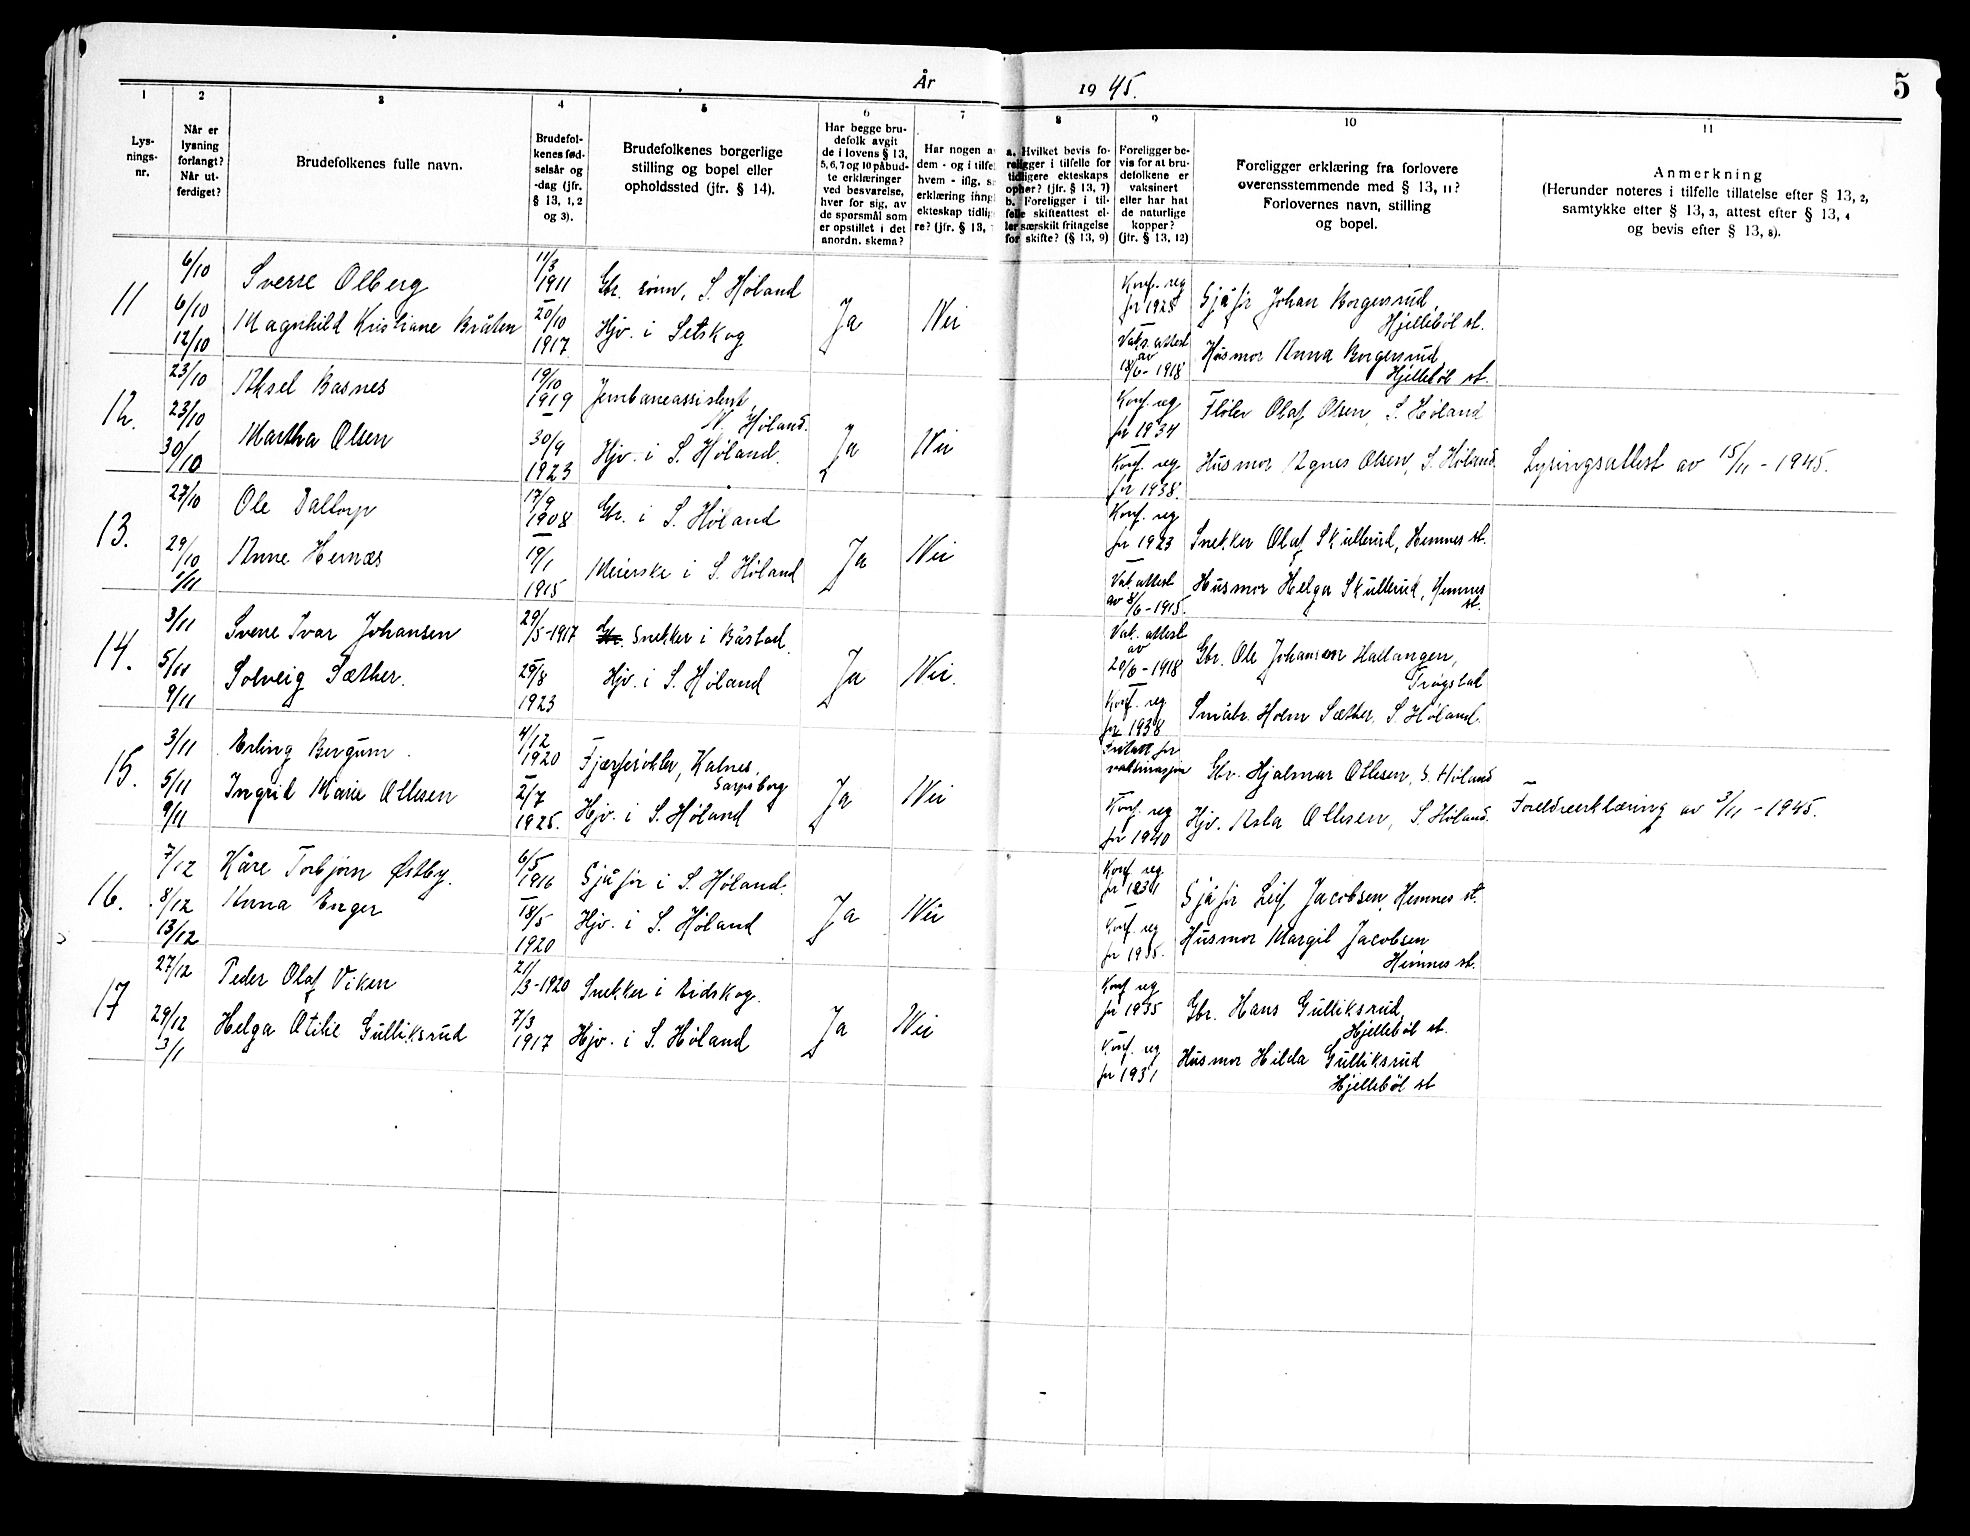 År 1945.
5
1
2
3
4
5
6
7
8
9
10
11
Lys-
nings-
nr.
Når er
lysning
forlangt?
Når ut-
ferdiget?
Brudefolkenes fulle navn.
Brudefol-
kenes fød-
selsår og
-dag (jfr.
§ 13, 1, 2
og 3).
Brudefolkenes borgerlige
stilling og bopel eller
opholdssted (jfr. § 14).
Har begge bru-
defolk avgit
de i lovens § 13,
5, 6, 7 og 10 påbud-
te erklæringer
ved besvarelse,
hver for sig, av
de spørsmål som
er opstillet i det
anordn. skema?
Har nogen a
dem - og i tilfe
hvem - iflg.
erklæring inng
ekteskap tidlig
re? (jfr. § 13,
a. Hvilket bevis fo-
religger i tilfelle for
tidligere ekteskaps
ophør? (jfr. § 13, 7)
b. Foreligger i til-
felle skifteattest el-
ler særskilt fritagelse
for skifte? (§ 13, 9)
Foreligger be-
vis for at bru-
defolkene er
vaksinert
eller har hat
de naturlige
kopper?
(jfr. § 13, 12)
Foreligger erklæring fra forlovere
overensstemmende med § 13, 11?
Forlovernes navn, stilling
og bopel.
Anmerkning
(Herunder noteres i tilfelle tillatelse efter § 13, 2,
samtykke efter § 13, 3, attest efter § 13, 4
og bevis efter § 13, 8).
11
6/10
6/10
12/10
Sverre Olberg
Magnhild Kristiane Bråten
11/3
1911
20/10
1917
Gbr. sønn, S. Høland
Hjv. i Setskog
Ja
Nei
Konf. reg
for 1925
Vaks. attest
av
18/6 - 1918
Sjåfør Johan Borgersrud,
Hjellebøl st.
Husmor Anna Borgersrud,
Hjellebøl st.
12.
23/10
23/10
30/10
Aksel Basnes
Martha Olsen
19/10
1919
30/9
1923
Jernbaneassistent,
N. Høland.
Hjv. i S. Høland.
Ja
Nei
Konf. reg
for 1934
Konf. reg
for 1938.
Fløter Olaf Olsen, S. Høland
Husmor Agnes Olsen, S. Høland.
Lysningsattest av 15/11 - 1945.
13.
27/10
29/10
1/11
Ole Daltorp
Anne Hernæs
17/9
1908
19/1
1915
Gbr. i S. Høland
Meierske i S. Høland
Ja
Nei
Konf. reg
for 1923
Vak. attest
av 8/6 - 1915.
Snekker Olaf Skullerud, Hemnes st.
Husmor Helga Skullerud, Hemnes
st.
14.
3/11
5/11
9/11
Sverre Ivar Johansen
Solveig Sæther.
29/5 - 1917
29/8
1923
Gbr. Snekker i Båstad.
Hjv. i S. Høland
Ja
Nei.
Vak. attest
av
20/6 - 1918
Konf. reg
for 1938
Gbr. Ole Johansen Hallangen,
Trøgstad
Småbr. Holm Sæther, S. Høland.
15.
3/11
5/11
9/11
Erling Bergum.
Ingrid Marie Ottesen
4/12
1920
2/7
1925.
Fjærferøkter, Kalnes,
Sarpsborg
Hjv. i S. Høland
Ja
Nei
Fritatt for
vaksinasjon
Konf. reg
for 1940
Gbr. Hjalmar Ottesen, S. Høland
Hjv. Asta Ottesen, S. Høland.
Foreldreerklæring av 3/11 - 1945.
16.
7/12
8/12
13/12
Kåre Torbjørn Østby.
Anna Enger
6/5
1916
18/5
1920
Sjåfør i S. Høland.
Hjv. i S. Høland
Ja
Nei
Konf. reg.
for 1931
Konf. reg
for 1935.
Sjåfør Leif Jacobsen, Hemnes st.
Husmor Margit Jacobsen
Hemnes st.
17
27/12
29/12
3/1
Peder Olaf Viken
Helga Otilie Gulliksrud
21/3 - 1920
7/3
1917
Snekker i Eidskog.
Hjv. i S. Høland
Ja
Nei
Konf. reg
for 1935
Konf. reg
for 1931
Gbr. Hans Gulliksrud,
Hjellebøl st.
Husmor Hilda Gulliksrud
Hjellebøl st